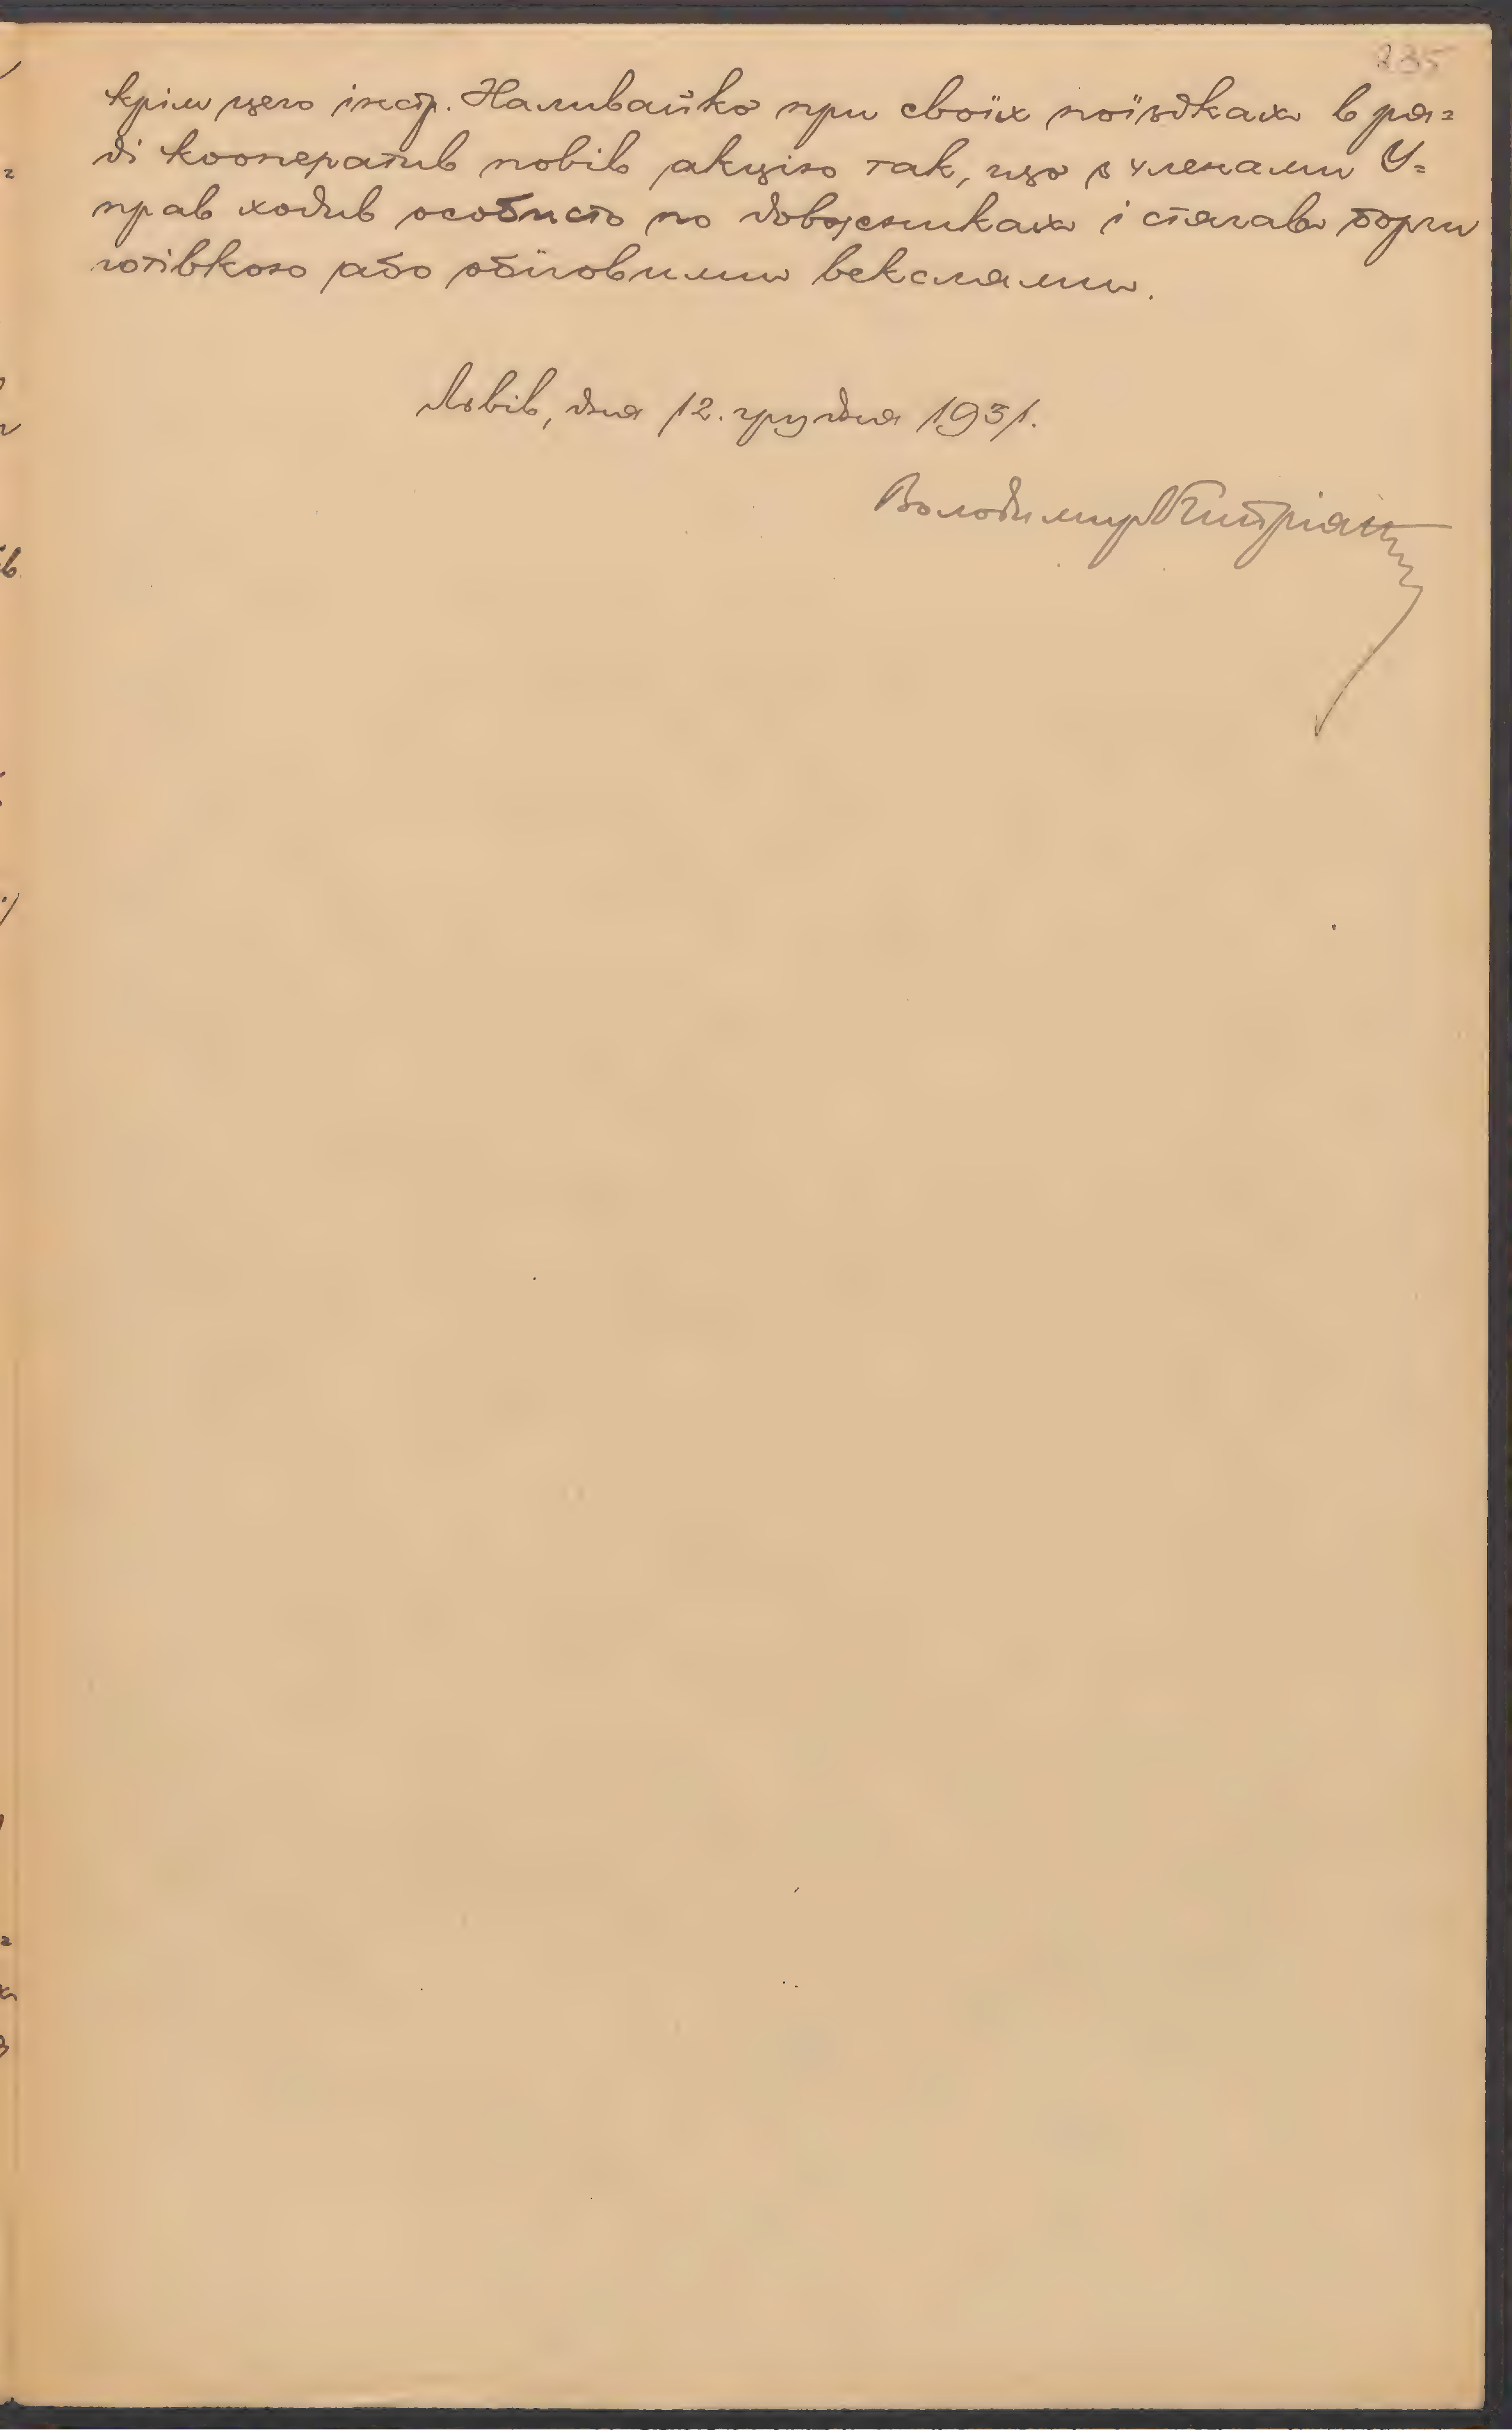 235
крім цего інстр. Наливайко при своїх поїздках в ря=
ді кооператив повів акцію так, що з членами У=
прав ходив особисто по довжниках і стягав борги
готівкою або обіговими векслями.
Львів, дня 12. грудня 1931.
Володимир